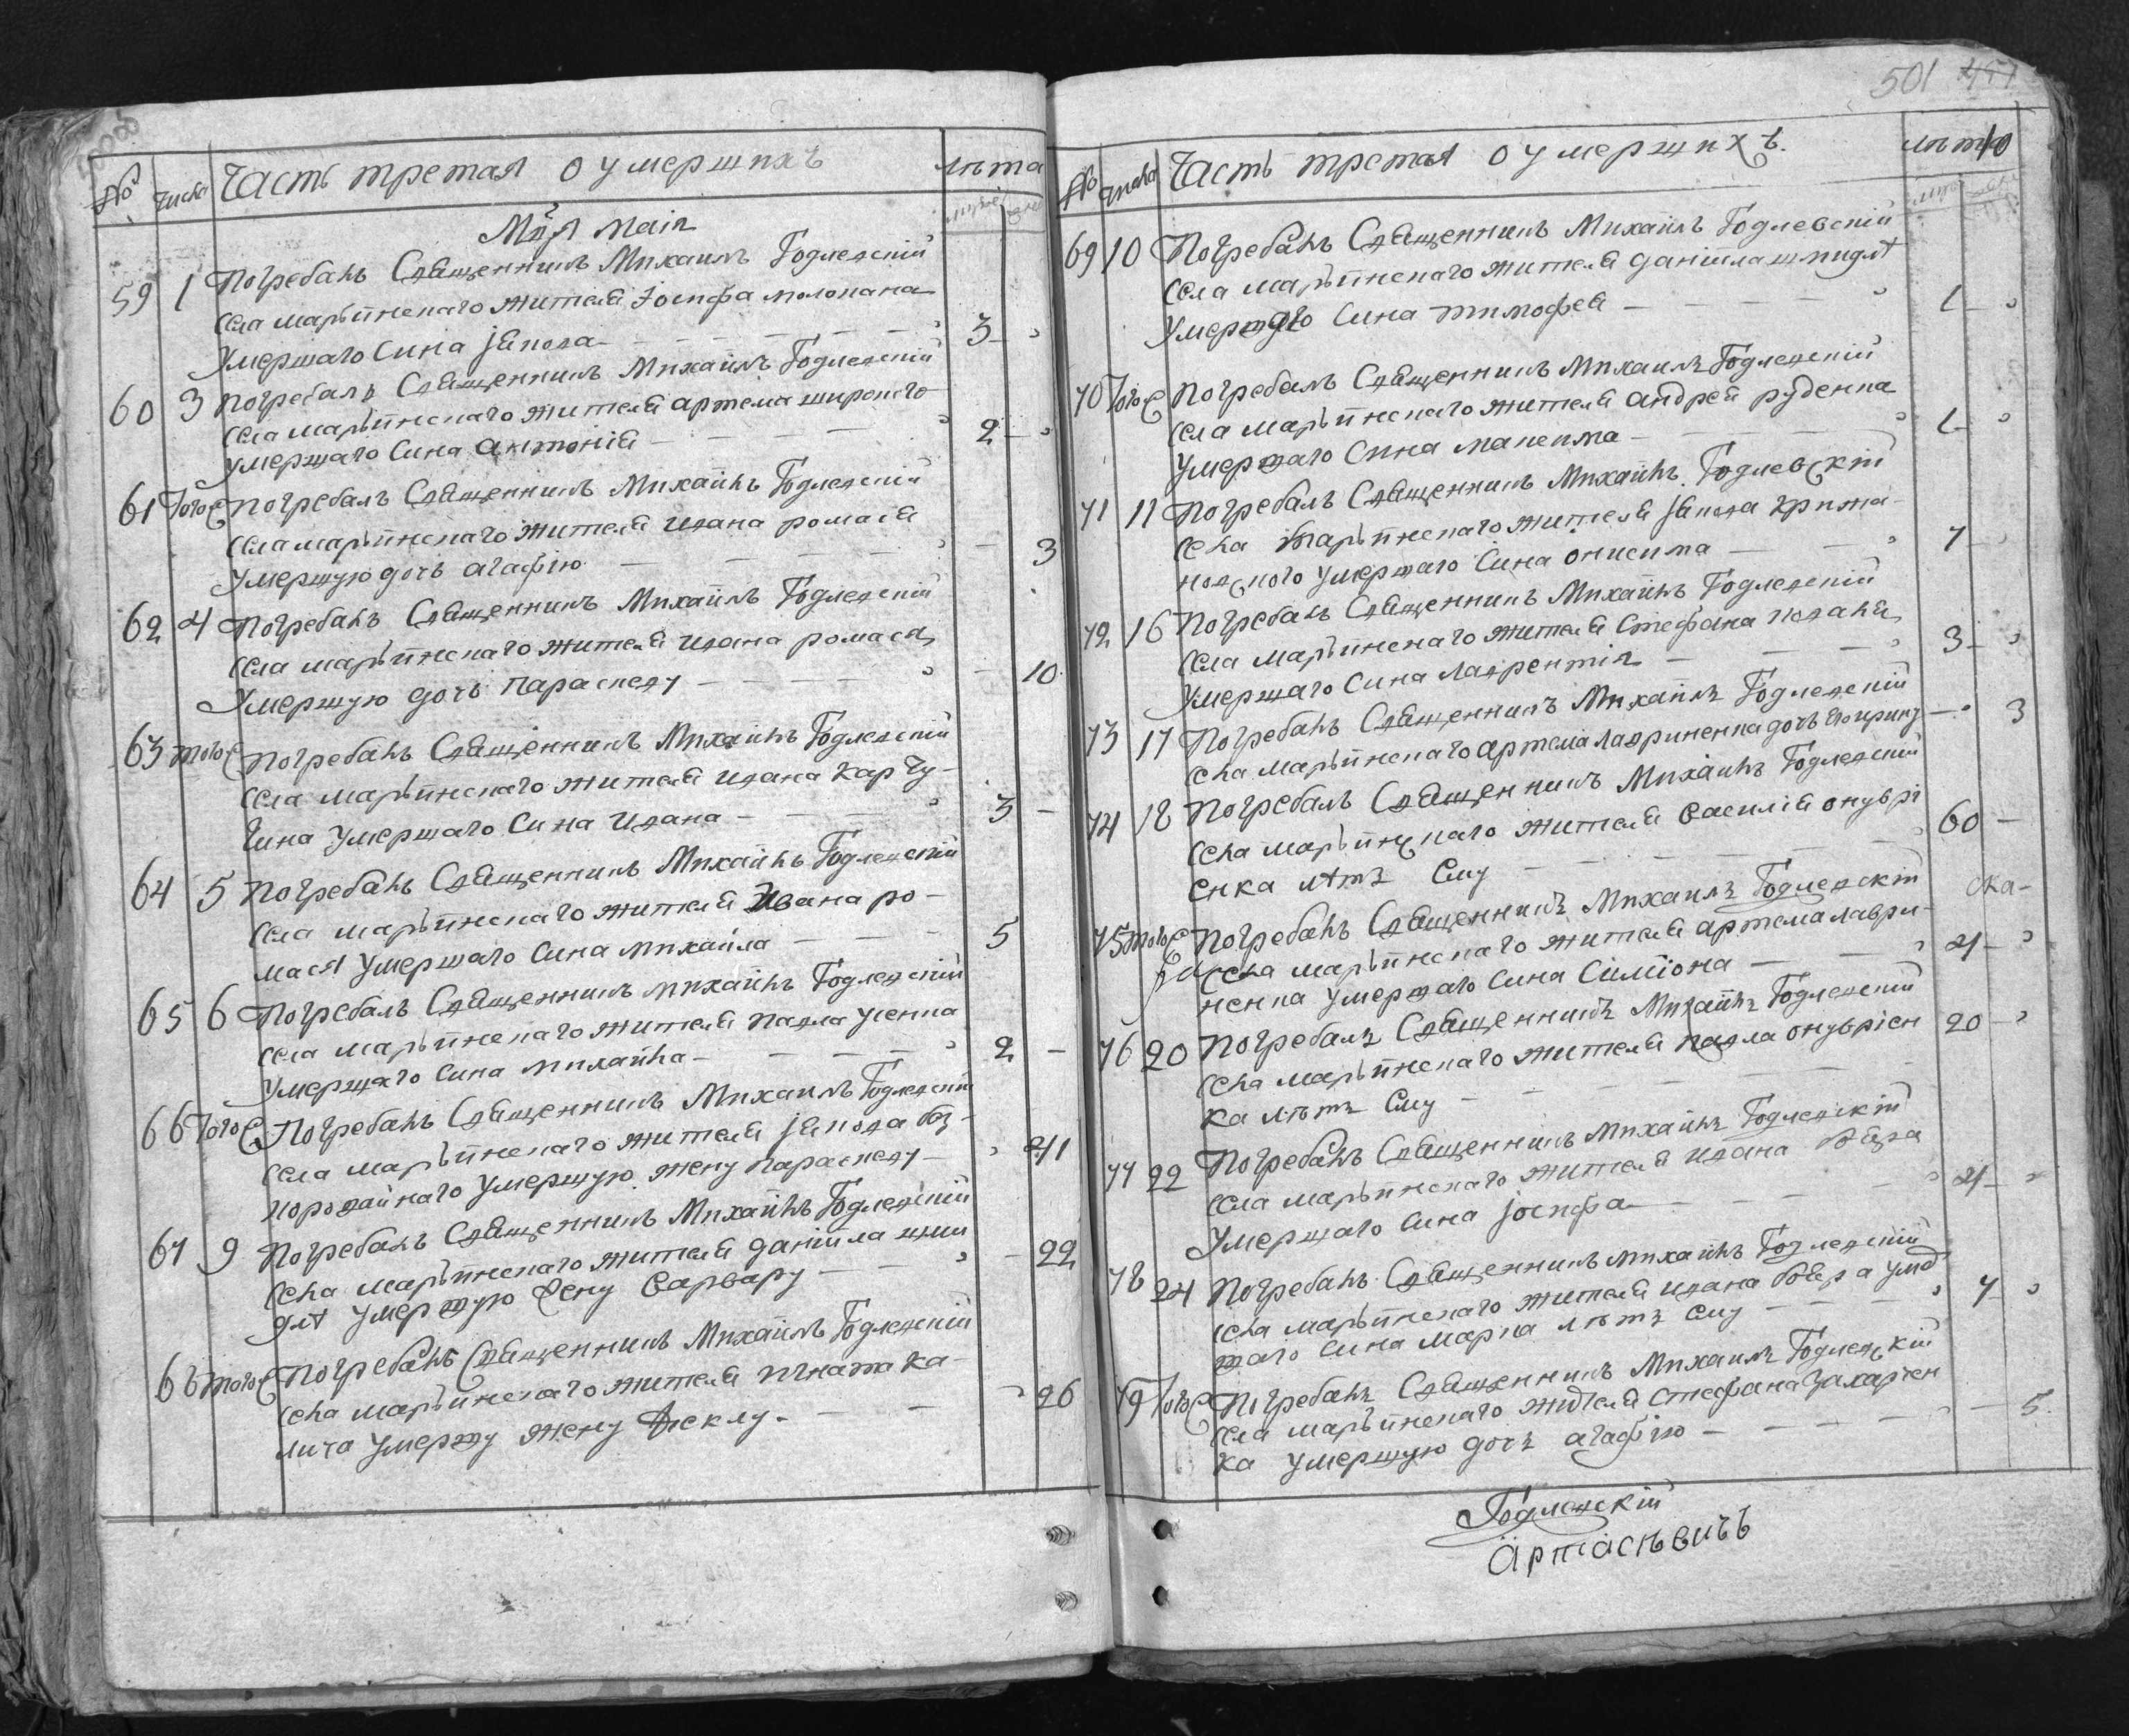 № числа Часть третая о умершихъ лѣта
Мца маія
59 1 Погребалъ Священникъ Михаилъ Годлевскій
села марьинскаго жителя Іосифа
умершаго сина Іякова 3
60 3 Погребалъ Священникъ Михаилъ Годлевскій
села марьинскаго жителя артема широкого
умершаго сина антонія 2
61 Того погребалъ Священникъ Михаилъ Годлевскій
села марьинскаго жителя ивана ромася
умершую дочь агафію 3
62 4 Погребалъ Священникъ Михаилъ Годлевскій
села марьинскаго жителя ивана ромася
умершую дочь параскеву 10
63 того погребалъ Священникъ Михаилъ Годлевскій
села марьинскаго жителя ивана карпу-
шина умершаго сина ивана 3
64 5 Погребалъ Священникъ Михаилъ Годлевскій
села марьинскаго жителя Ивана ро-
мася умершаго сина михаила 5
65 6 Погребалъ Священникъ михаилъ Годлевскій
села марьинскаго жителя павла усенка
умершаго сина михаила 2
66 Того Погребалъ Священникъ Михаилъ Годлевскій
села марьинскаго жителя якова без-
коровайнаго умершую жену параскеву 41
67 9 Погребалъ Священникъ Михаилъ Годлевскій
села марьинскаго жителя даніила шми
длѣ умершую жену варвару 22
68 того Погребалъ Священникъ Михаилъ Годлевскій
села марьинскаго жителя игната ка-
лита умершу жену Феклу 26
501
№ числа Часть третая о умершихъ. лѣта
69 10 Погребалъ Священникъ Михаилъ Годлевскій
села марьинскаго жителя даніила шмидлѣ
умершаго сина тимофея 1
70 Того погребалъ Священникъ михаилъ Годлевскій
села марьинскаго жителя андрея руденка
умершаго сина максима 1
71 11 погребалъ Священникъ Михаилъ Годлевскій
села марьинскаго жителя якова крижа-
новского умершаго сина онисима 7
72 16 Погребалъ Священникъ Михаилъ Годлевскій
села марьинскаго жителя Стефана
умершаго сина лаврентія 3
73 17 Погребалъ Священникъ Михаилъ Годлевскій
села марьинскаго артема лавриненка дочь ирину 3
74 18 Погребалъ Священникъ Михаилъ Годлевскій
села марьинскаго жителя василія онуврі
енка лѣтъ ему 60
75 того погребалъ Священникъ Михаилъ Годлевскій
села марьинскаго жителя артема лаври-
ненка умершаго сина Симіона 4
76 20 Погребалъ Священникъ Михаилъ Годлевскій
села марьинскаго жителя павла онувріен 20
ка лѣтъ ему
77 22 Погребалъ Священникъ михаилъ Годлевскій
села марьинскаго жителя ивана
умершаго сина іосифа 4
78 24 Погребалъ Священникъ михаилъ Годлевскій
села марьинскаго жителя ивана умер
шаго сина марка лѣтъ ему 7
79 Того Погребалъ Священникъ Михаилъ Годлевскій
села марьинскаго жителя Стефана захаріен
ка умершую дочь агафію 5
Годлевскій